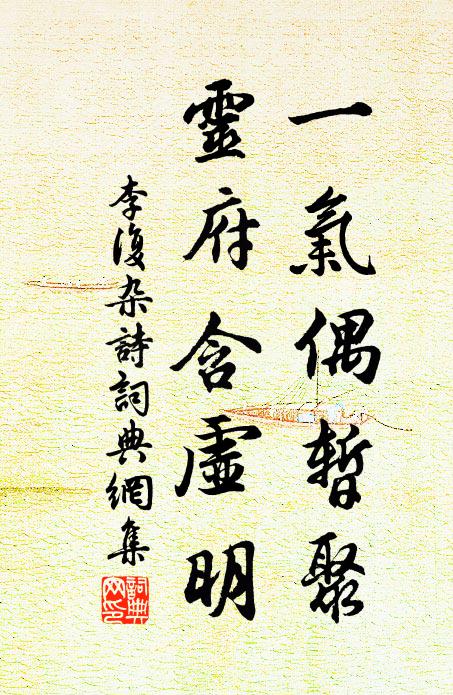 一氣偶暫聚
靈府含虛明
李復杂詩詞典網集
詞典网印